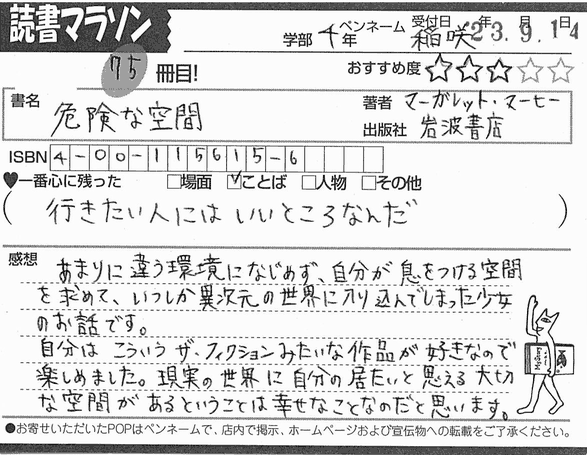 読書マラソン
学部 4年 ペンネーム 稲咲 受付日 '23年9月14日
75冊目!
おすすめ度 ☆☆☆☆☆
書名 危険な空間
著者 マーガレット・マーヒー
出版社 岩波書店
ISBN 4-00-115615-6
♥一番心に残った □場面 ☑ことば □人物 □その他
(行きたい人にはいいところなんだ)
感想 あまりに違う環境になじめず、自分が息をつける空間
を求めて、いつしか異次元の世界に入り込んでしまった少女
のお話です。
自分はこういう ザ・フィクションみたいな作品が好きなので
楽しめました。現実の世界に自分の居たいと思える大切
な空間があるということは幸せなことなのだと思います。
●お寄せいただいたPOPはペンネームで、店内で掲示、ホームページおよび宣伝物への転載をご了承ください。